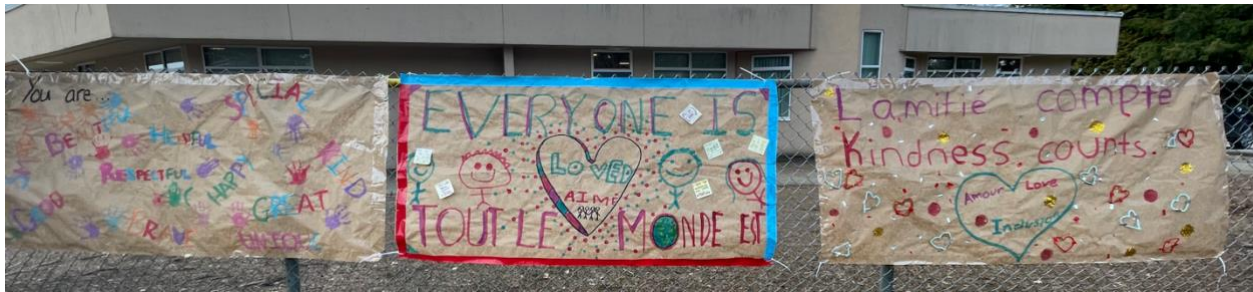 You are...
SPECIAL
BE
HELPFUL
RESPECTFUL
HAPPY
KIND
GOOD
BRAVE
GREAT
EVERYONE IS
LOVED
AIMÉ
TOUT LE MONDE EST
L'amitié compte
Kindness. counts.
Amour Love
Inclusion